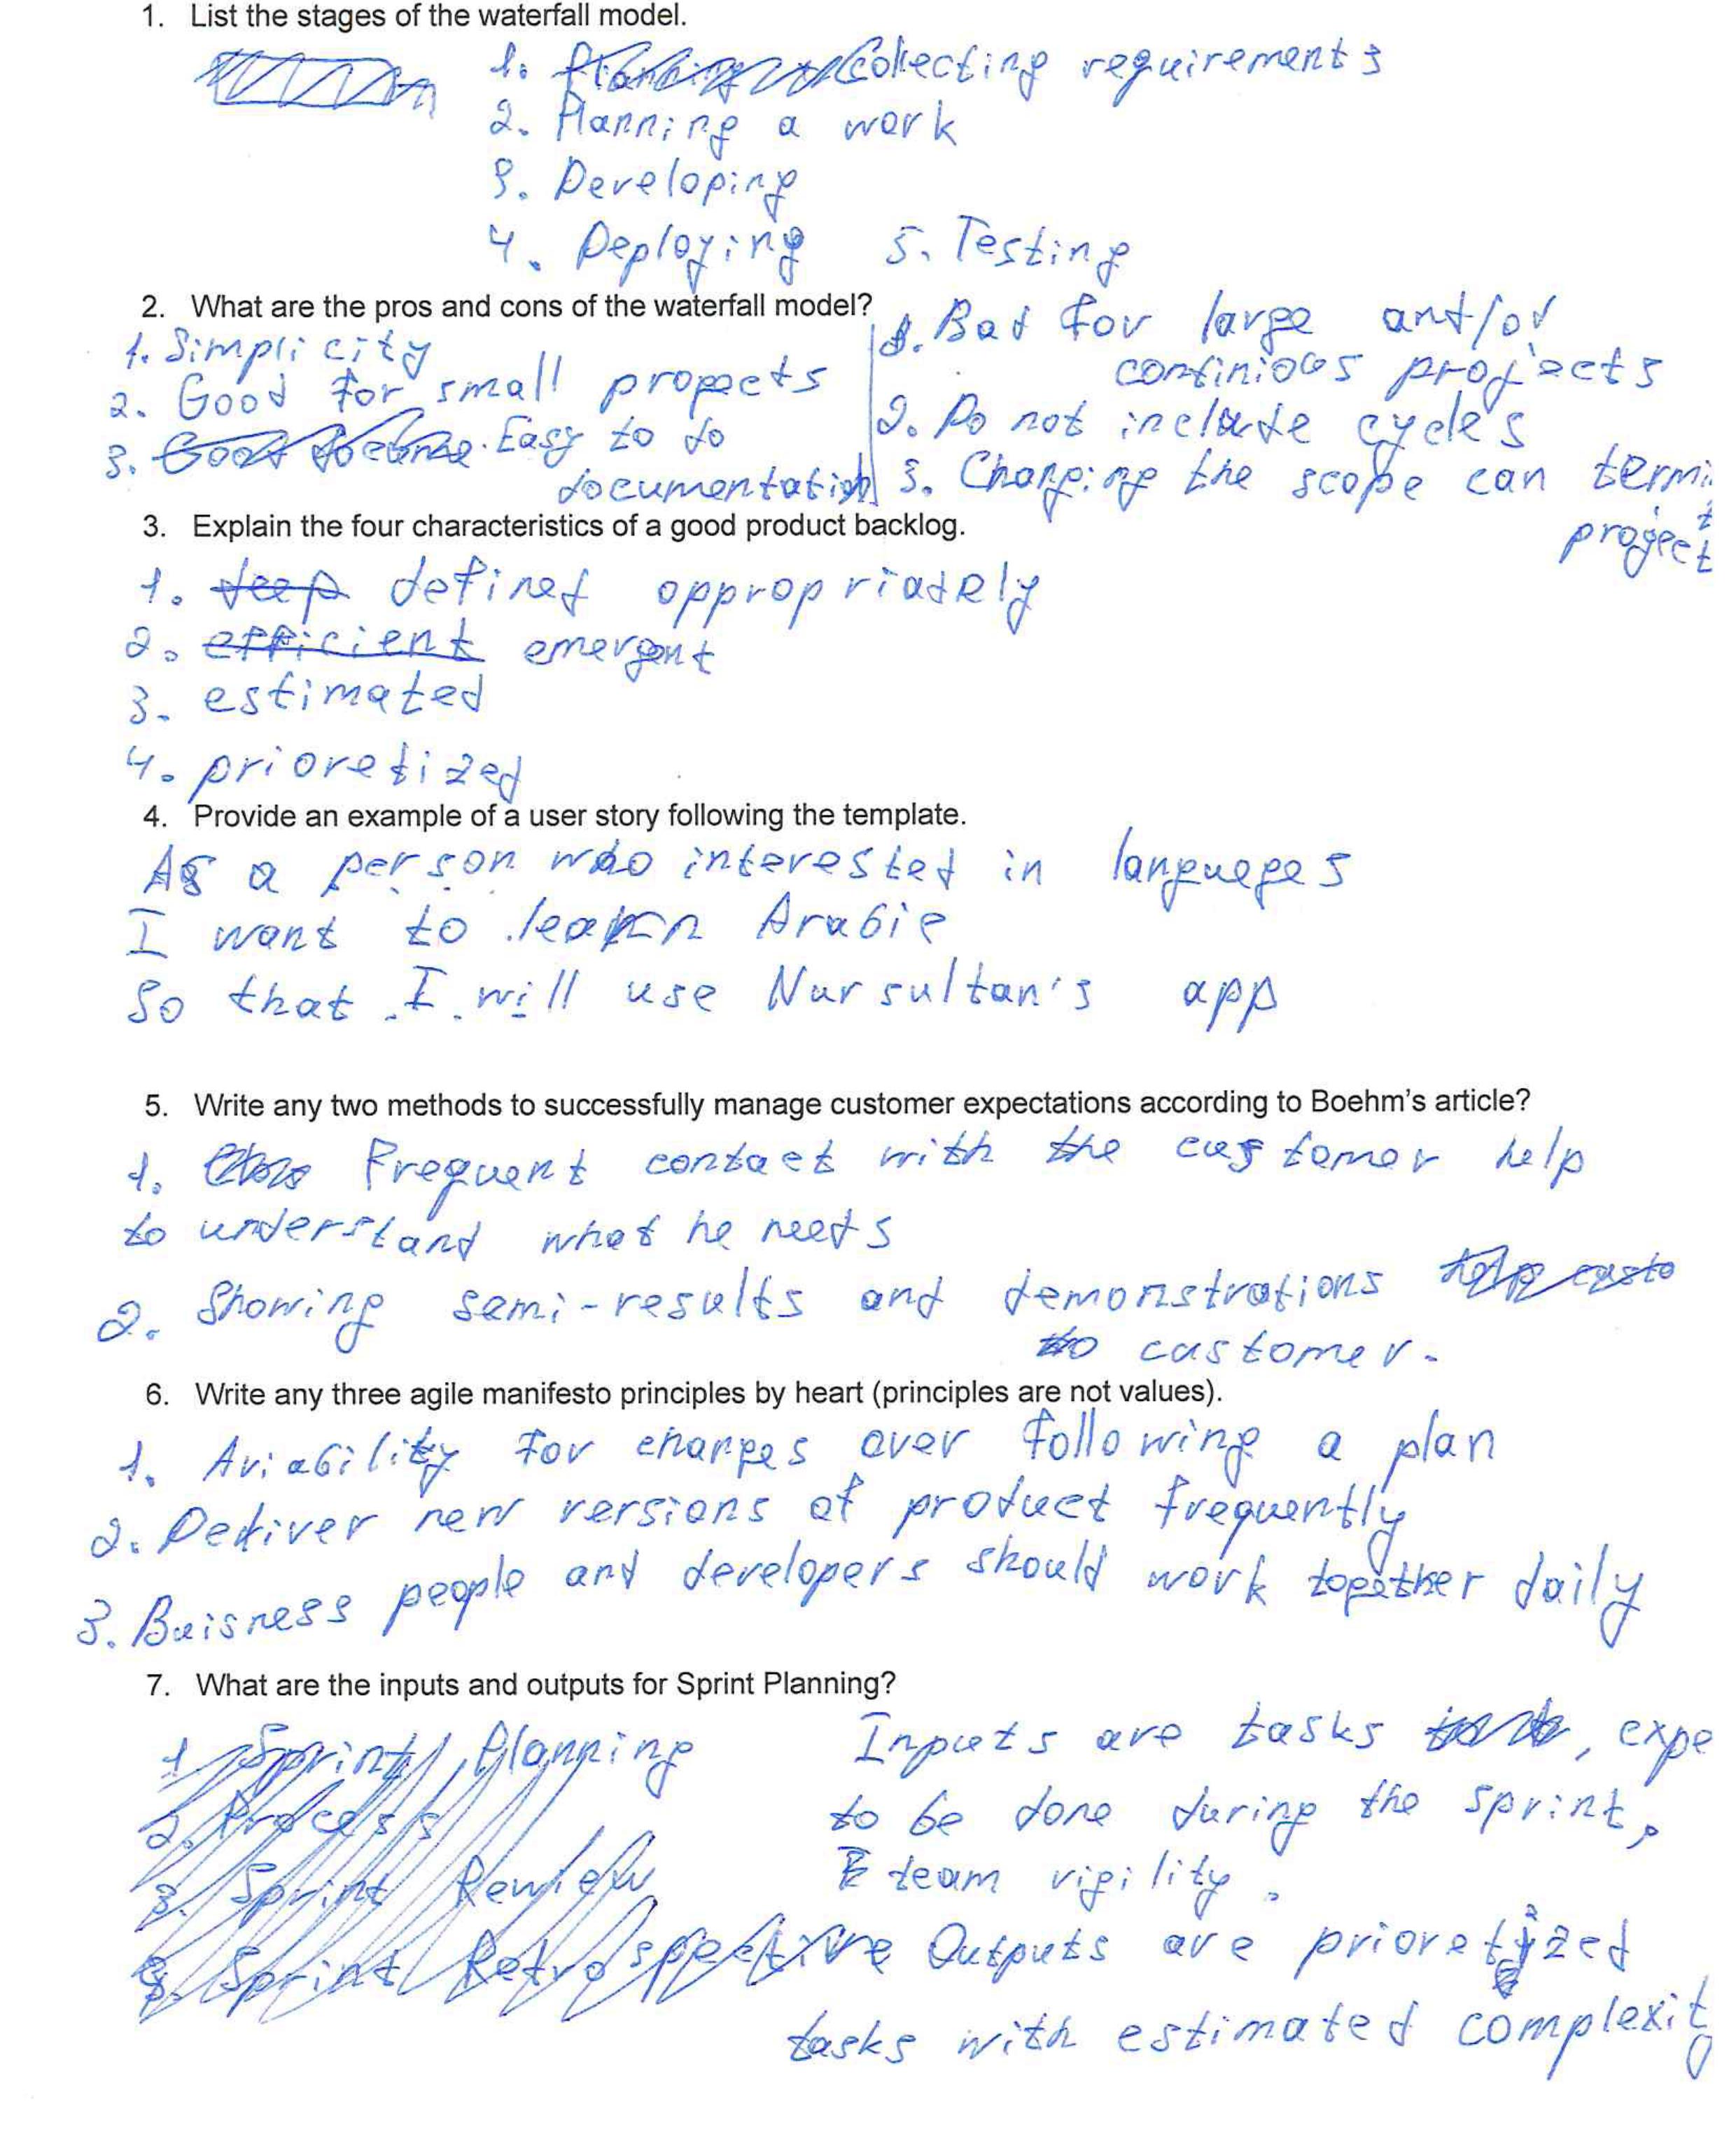 1. List the stages of the waterfall model.
1. Collecting requirements
2. Planning a work
3. Developing
4. Deploying 5. Testing
2. What are the pros and cons of the waterfall model?
1. Simplicity
2. Good for small propects
3. Easy to do
documentation
1. Bad for large and/or
continious projects
2. Do not include cycles
3. Changing the scope can termi
project
3. Explain the four characteristics of a good product backlog.
1. deep defined oppropriately
2. efficient emergent
3. estimated
4. prioretized
4. Provide an example of a user story following the template.
As a person who interested in languages
I want to learn Arabic
So that I will use Nursultan's app
5. Write any two methods to successfully manage customer expectations according to Boehm's article?
1. Frequent contact with the customer help
to understand what he needs
2. Showing semi-results and demonstrations
to customer.
6. Write any three agile manifesto principles by heart (principles are not values).
1. Aviability for changes over following a plan
2. Deliver new versions of product frequently
3. Buisness people and developers should work together daily
7. What are the inputs and outputs for Sprint Planning?
1. Sprint Planning
2. Process
3. Sprint Review
Sprint Retrospective
Inputs are tasks , expe
to be done during the sprint,
team vigility.
Outputs are prioretized
tasks with estimated complexit